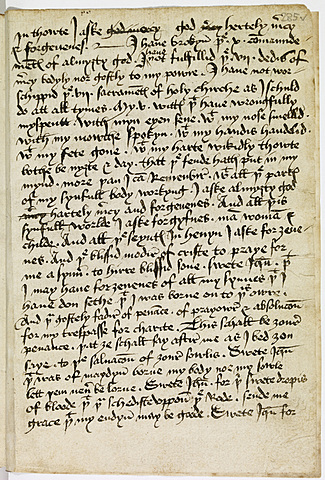 In thowte I aske god hertely mcy
& forgeuenes. I haue brokyn þe x comande
mett of almyȝty god I haue not fulfillid þe vij dedis of
mcy bodyly nor gostly to my powre. I haue not wor
schippid þe vij sacramett of holy chirche as I schuld
do att all tymes. My v. wittis þt I haue wrongfully
myspentt. with myn eyen sene. wt my nose smellid
with my mowthe spokyn. wt my handis handelid.
wt my fete gone. wt my harte wikidly thowte
bothe be nyȝte & day. that þe fende hath put in my
mynd. more þan I can Remembr. wt all þe partis
of my synfull body wrouȝt. I aske almyȝty god
hartely mcy and forgeuenes. And all þis
synfull worlde I aske forgyfnes. ma woma &
childe. And all þe seyntis In heuyn I aske forȝeue
nes. And þe blissid modir of criste to praye for
me a synnr. to hir blissid sone. Swete Ihu. þt
I may haue forȝeuenes of all my synnes þt I
haue don sethe þt I was borne on to þis owre.
And þe gostely fadir of penace. of prayowrs & absolucon
for my trespasse for charite. This schall be ȝowr
penance. þat ȝe schall say aftir me as I bed ȝow
saye. to þe saluacon of ȝowr sowlis. Swete Ihu
þt was of maydyn borne my body nor my sowle
lett yem neuer be lorne. Swete Ihu. for þe swete dropis
of blode þt þu scheddist vppon þe rode. sende me
grace þt my endyng may be gode. Swete Ihu for